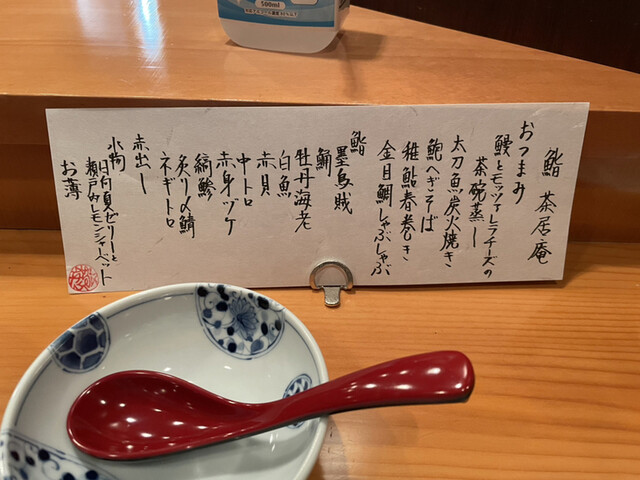 500ml
鮨 茶居庵
おつまみ
鰻とモッツァレラチーズの
茶碗蒸し
太刀魚炭火焼き
鮑へぎそば
稚鮎春巻き
金目鯛しゃぶしゃぶ
鮨
墨烏賊
鯒
牡丹海老
白魚
赤貝
中トロ
赤身ヅケ
縞鯵
炙り〆鯖
ネギトロ
赤出し
小物
日向夏ゼリーと
瀬戸内レモンシャーベット
お薄